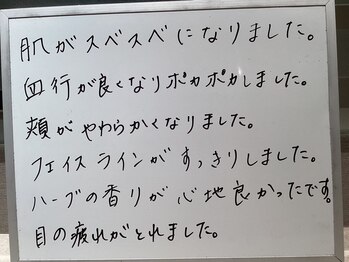 肌がスベスベになりました。
血行が良くなりポカポカしました。
頬がやわらかくなりました。
フェイスラインがすっきりしました。
ハーブの香りが心地良かったです。
目の疲れがとれました。